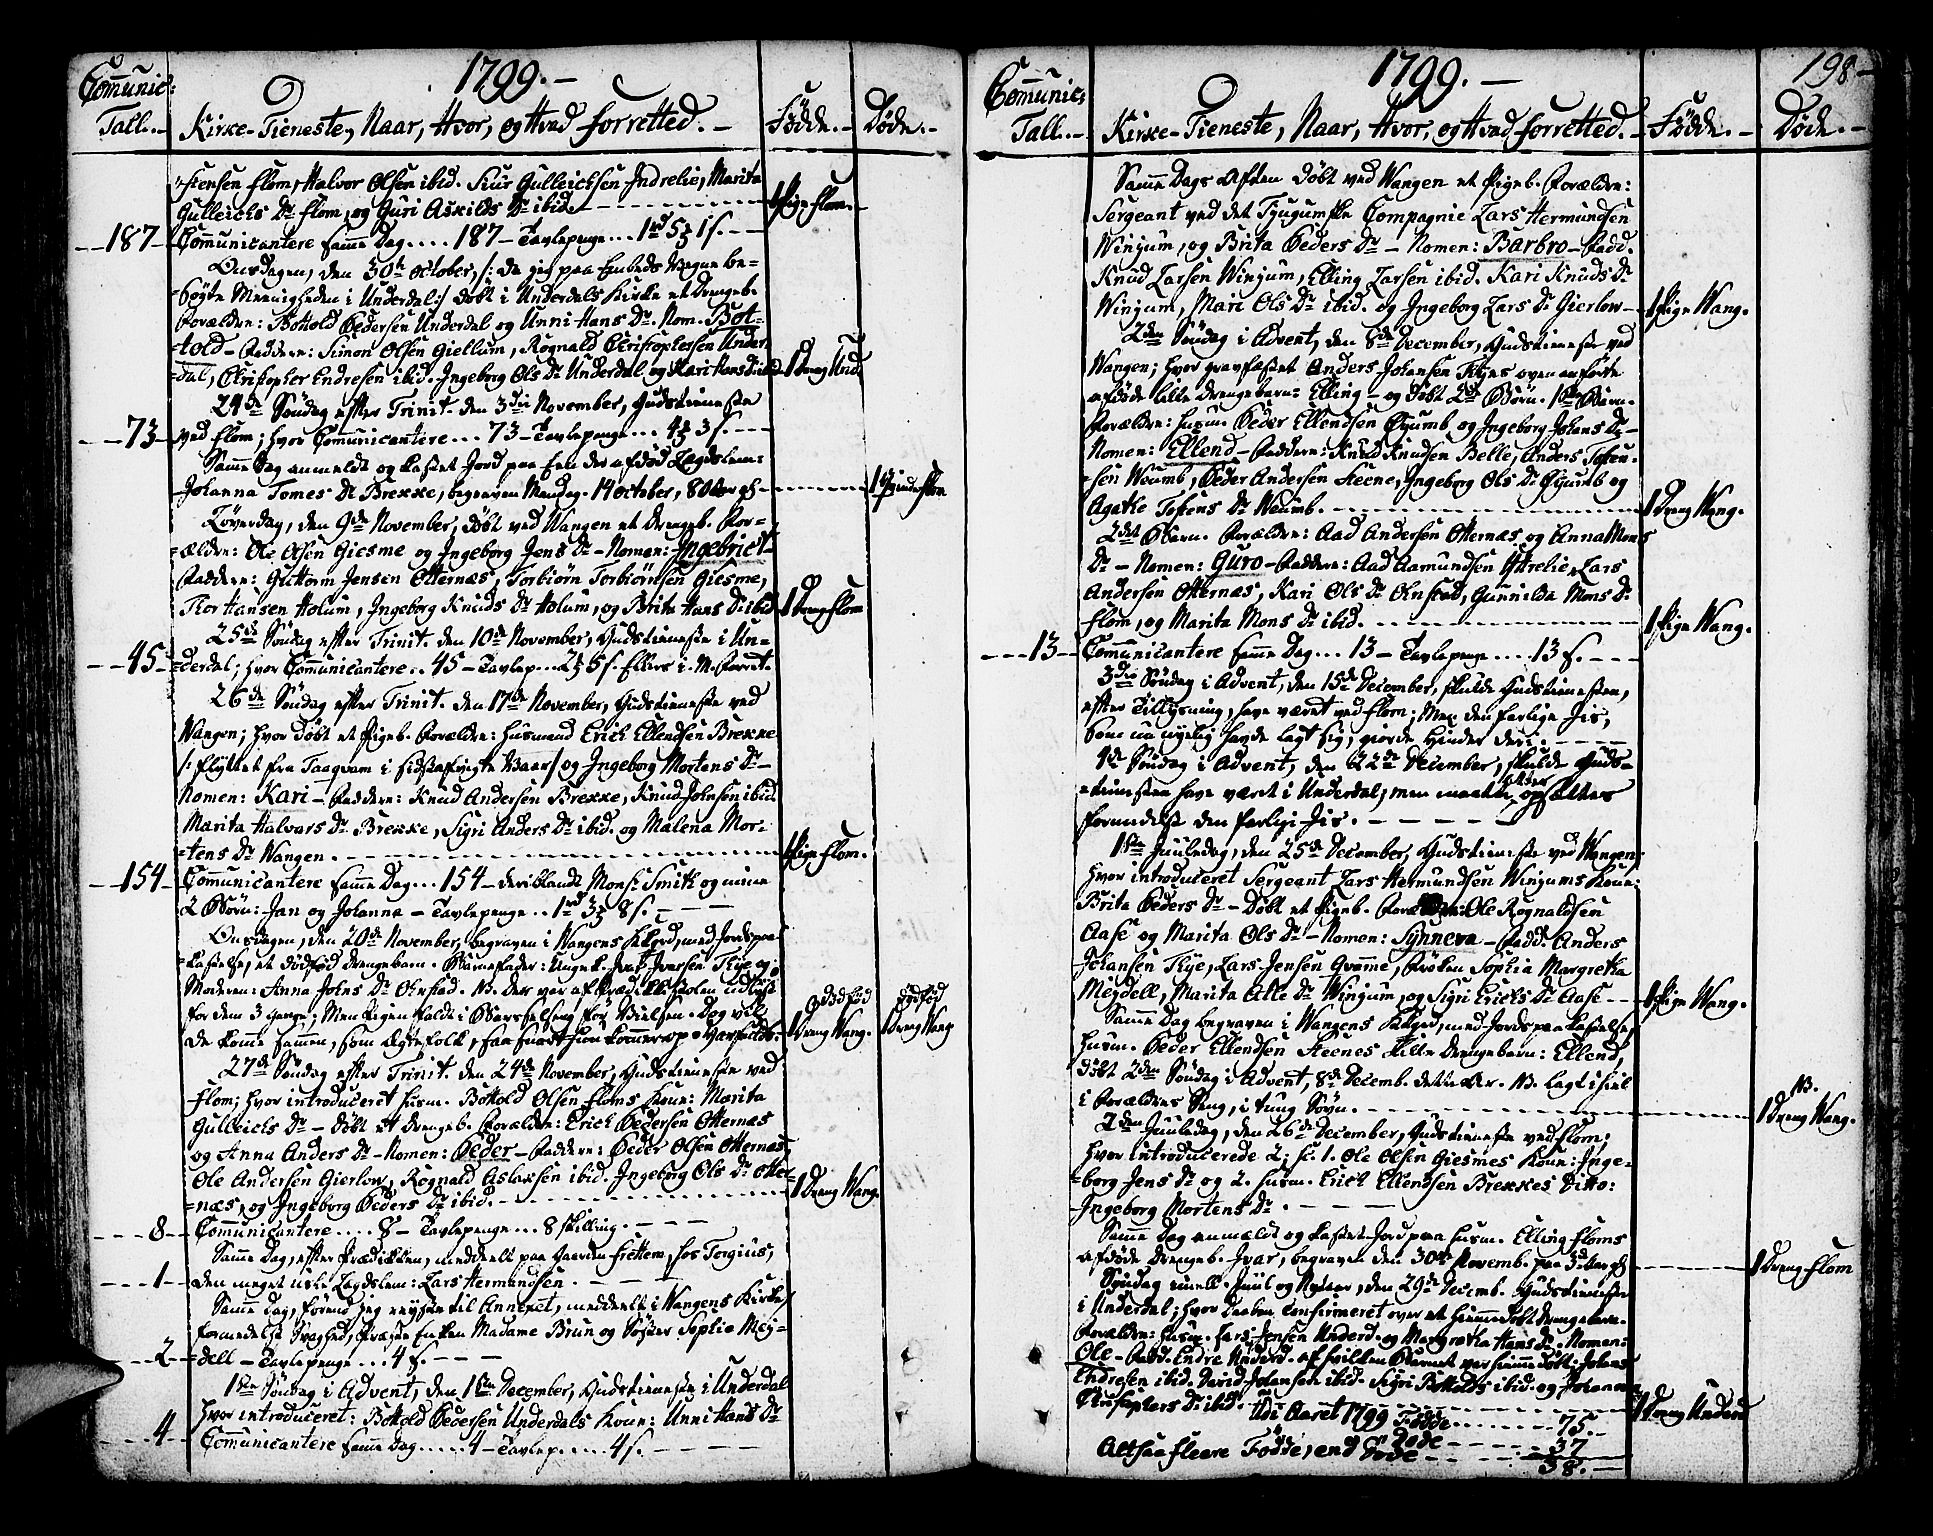 1799.-
Comunic:
Tall.- Kirke-Tieneste, Naar, Hvor, og Hvad forretted.- Fødde.- Døde.-
stensen Flom, Halvor Olsen ibid. Siur Gulleichsen Indrelie, Marita
Gulleichs Dr Flom, og Guri Askilds Dr ibid. 1 Pige Flom.
187 Comunicantere samme Dag.... 187 - Tavlepenge... 1rd 5ʒ 1 s.
Onsdagen, den 30te October, /: da jeg paa Embeds Vegne be-
søgte Meenigheden i Underdal:/ døbt i Underdals Kirke et Drengeb.
Forældre: Bottold Pedersen Underdal og Unni Hans Dr. Nom. Bot-
told - Faddere: Simon Olsen Giellum, Rognald Christophersen Under-
dal, Christopher Endresen ibid. Ingeborg Ols Dr Underdal og Kari Hans Dr ibid. 1 Dreng Und.
24de Søndag efter Trinit. den 3die November, Gudstieneste
73 ved Flom; hvor Comunicantere... 73 - Tavlepenge... 4ʒ 3 s.
Samme Dag anmeldt og kastet Jord paa Een der afdød Lægdslem:
Johanna Tomes Dr Brekke, begraven Mandag. 14 October, 80 Aar gl. 1 Qvinde Flom
Løverdag, den 9de November, døbt ved Wangen et Drengeb. For-
ældre: Ole Olsen Giesme og Ingeborg Jens Dr - Nomen: Ingebrict
Faddere: Guttorm Jensen Otternæs, Torbiørn Torbiørnsen Giesme,
Thor Hansen Holum, Ingeborg Knuds Dr Holum, og Brita Hans Dr ibid. 1 Dreng Flom
25de Søndag efter Trinit. den 10de November, Gudstieneste i Un-
45 derdal; hvor Comunicantere.. 45 - Tavlep... 2ʒ 5 s. Ellers i. M. Forret.
26de Søndag efter Trinit. den 17de November, Gudstieneste ved
Wangen; hvor døbt et Pigeb. Forældre: Husmand Erich Ellendsen Brekke
/: flyttet fra Taaqvam i sidstafvigte Vaar/ og Ingeborg Mortens Dr -
Nomen: Kari - Faddere: Knud Andersen Brekke, Knud Johnsen ibid.
Marita Halvars Dr Brekke, Sigri Anders Dr ibid. og Malena Mor-
tens Dr Wangen. 1 Pige Flom.
154 Comunicantere samme Dag... 154 - deriblandt Monsr. Smith og mine
2 Børn: Jan og Johanna - Tavlepenge.. 1rd 3ʒ 8 s.
Onsdagen, den 20de November, begraven i Wangens Kkgrd, med Jords paa-
kastelse, et dødfød Drengebarn. Barnefader: Ungek. Ivar Iversen Thye og
Moderen: Anna Johns Dr Ohnstad. NB. der var af Prædikestolen udlyst
for dem 3 Gange; Men Pigen faldt i Barselseng før Vielsen. Dog vil
de komme sammen, som Ægtefolk, saa snart hun kommer op 1 dødfød Dreng Wang. 1 dødfød Dreng Wang
27de Søndag efter Trinit. den 24de November, Gudstieneste ved
Flom; hvor introduceret Husm. Bottold Olsen Floms Kone: Marita
Gulleichs Dr - Døbt et Drengeb. Forældre: Erich Pedersen Otternæs
og Anna Anders Dr - Nomen: Peder - Faddere: Peder Olsen Otternæs,
Ole Andersen Gierlow, Rognald Aslaksen ibid. Ingeborg Ols Dr Otter-
næs, og Ingeborg Peders Dr ibid. 1 Dreng Wang.
8 Comunicantere.... 8 - Tavlepenge... 8 skilling.
Samme Dag, efter Prædikken, meddeelt paa Gaarden Frettem, hos Torgius,
1 den meget usle Lægdslem: Lars Hermundsen.
Samme Dag, førend jeg reyste til Annexet, meddeelt i Wangens Kirke,
formedelst Svaghed, Enken Madame Brun og Søster Sophia Mey-
2 dell - Tavlepenge... 4 s.
1ste Søndag i Advent, den 1ste December, Gudstieneste i Underdal
hvor introduceret: Bottold Pedersen Underdals Kone: Unni Hans Dr
4 Comunicantere samme Dag..... 4 - Tavlep..... 4 s.
1799.- 198-
Comunic:
Tall.- Kirke-Tieneste, Naar, Hvor, og Hvad forretted.- Fødde.- Døde.-
Samme Dags Aften døbt ved Wangen et Pigeb. Forældre:
Sergeant ved det Tyugumske Compagnie Lars Hermundsen
Winjum, og Brita Peders Dr - Nomen: Barbro - Fadd.
Knud Larsen Winjum, Elling Larsen ibid. Kari Knuds Dr
Winjum, Mari Ols Dr ibid. og Ingeborg Lars Dr Gierlow- 1 Pige Wang.
2den Søndag i Advent, den 8de December, Gudstieneste ved
Wangen; hvor gravfæstet Anders Johansen Thyes ovenanførte
afdøde lille Drengebarn: Elling - og døbt 2de Børn. 1ste Barn.
Forældre: Husm. Peder Ellendsen Øyumb og Ingeborg Johans Dr -
Nomen: Ellend - Faddere: Knud Knudsen Belle, Anders Tosten-
sen Woumb, Peder Andersen Steene, Ingeborg Ols Dr Øyumb og
Agathe Tostens Dr Woumb. 1 Dreng Wang.
2det Barn. Forældre: Aad Andersen Otternæs og Anna Mons
Dr - Nomen: Guro - Faddere: Aad Aamundsen Ittrelie, Lars
Andersen Otternæs, Kari Ols Dr Ohnstad, Gunnilda Mons Dr
Flom, og Marita Mons Dr ibid. 1 Pige Wang.
13 Comunicantere samme Dag... 13 - Tavlepenge.... 13 s.
3die Søndag i Advent, den 15de December, skulde Gudstienesten,
efter Tillysning, have været ved Flom; Men den farlige Iis,
som nu nyelig havde lagt sig, giorde hinder deri.
4de Søndag i Advent, den 22de December, skulde Guds-
tienesten have været i Underdal, men maatte atter opsættes
formedelst den farlige Iis.
1ste Juuledag, den 25de December, Gudstieneste ved Wangen;
hvor introduceret Sergeant Lars Hermundsen Winjums Kone:
Brita Peders Dr - Døbt et Pigeb. Forældre: Ole Rognaldsen
Aase og Marita Ols Dr - Nomen: Synneva - Fadd. Anders
Johansen Thye, Lars Jensen Gvamme, Frøken Sophia Margretha
Meydell, Marita Atle Dr Winjum, og Sigri Erichs Dr Aase 1 Pige Wang.
Samme Dag begraven i Wangens Kkgrd, med Jords paakastelse,
Husm. Peder Ellendsen Steenes lille Drengebarn: Ellend,
døbt 2den Søndag i Advent, 8de Decemb. dette Aar. NB. lagt ihiel
i Forældres Seng, i tung Søvn. NB. 1 Dreng Wang.
2den Juuledag, den 26de December, Gudstieneste ved Flom;
hvor introducerede 2; sc: 1. Ole Olsen Giesmes Kone: Inge-
borg Jens Dr og 2. Husm. Erich Ellendsen Brekkes Ditto:
Ingeborg Mortens Dr.
Samme Dag anmeldt og kastet Jord paa Husm. Elling Floms
afdøde Drengeb. Ivar, begraven den 30te Novemb. 1 Dreng Flom
Søndag imell. Juul og Nytaar, den 29de Decemb. Gudstieneste
i Underdal; hvor Daaben confirmeret over et hiemmedøbt Drengebarn.
Forældre: Husm. Lars Jensen Underd. og Margretha Hans Dr. Nomen:
Ole - Fadd. Endre Underd. af hvilken Barnet var hiemmedøbt. Johans
Endresen ibid. David Johansen ibid. Sigri Bottolds ibid. og Johanna
Christophers Dr ibid. 1 Dreng Underd
Udi Aaret 1799 Fødde...... 75.
Døde - - - - 37
Altsaa fleere Fødde, end Døde - - - 38.